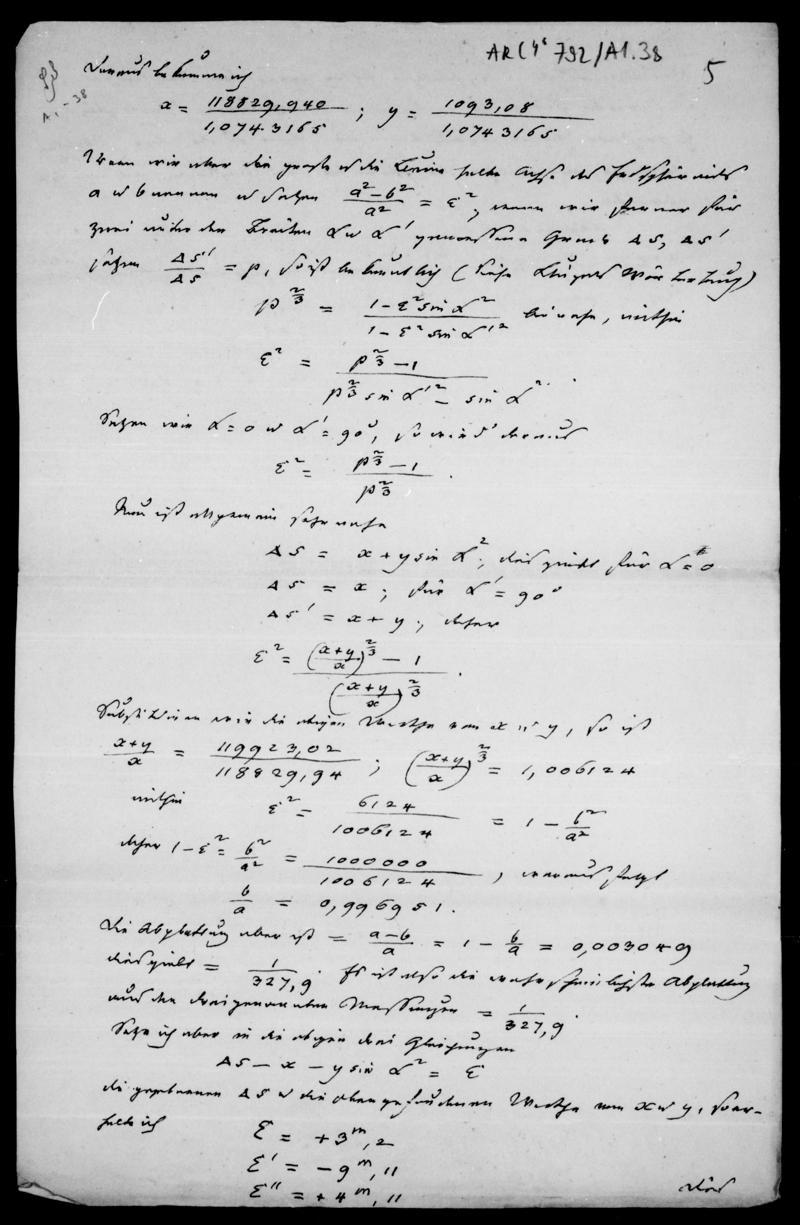 AR(4° 792/A1.38
5
A1-38
Daraus bekomme ich
x = 118829,940 / 1,0743165 ; y = 1093,08 / 1,0743165
Wenn wir aber die große u die kleine halbe Achse des Erdsphäroids
a u b nennen u setzen (a²-b²)/a² = ε², wenn wir ferner für
zwei unter den Breiten α u α' gemessene Grade ΔS, ΔS'
setzen ΔS'/ΔS = p, so ist bekanntlich (siehe Klügels Wörterbuch)
p^(2/3) = (1-ε² sin α²)/(1-ε² sin α'²) beinahe, mithin
ε² = (p^(2/3) -1)/(p^(2/3) sin α'² - sin α²).
Setzen wir α=0 u α'=90°, so wird daraus
ε² = (p^(2/3) -1)/p^(2/3).
Nun ist allgemein sehr nahe
ΔS = x + y sin α²; dies giebt für α=0
ΔS = x; für α'=90°
ΔS' = x+y; daher
ε² = (((x+y)/x)^(2/3) - 1)/((x+y)/x)^(2/3).
Substituiren wir die obigen Werthe von x u y, so ist
(x+y)/x = 119923,02/118829,94 ; ((x+y)/x)^(2/3) = 1,006124
mithin ε² = 6124/1006124 = 1 - b²/a²
daher 1-ε² = b²/a² = 1000000/1006124, woraus folgt
b/a = 0,996951.
Die Abplattung aber ist = (a-b)/a = 1 - b/a = 0,003049
dies giebt = 1/327,9. Es ist also die wahrscheinlichste Abplattung
aus den drei genannten Messungen = 1/327,9.
Setze ich aber in die obigen drei Gleichungen
ΔS - x - y sin α² = ε
die gegebenen ΔS u die oben gefundenen Werthe von x u y, so er-
halte ich
ε = +3^m,2
ε' = -9^m,11
ε'' = +4^m,11